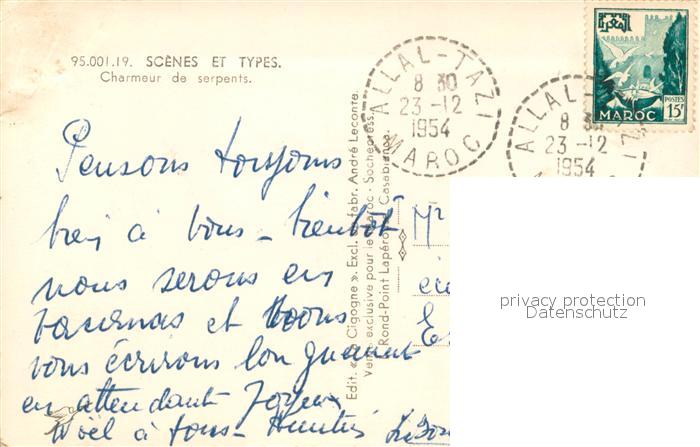 95.001.19. SCÈNES ET TYPES.
Charmeur de serpents.
ALLAL-TAZI
8 30
23-12
1954
MAROC
ALLAL-TAZI
8 30
23-12
1954
MAROC
POSTES
15F
Pensons toujours
bien à vous - bientôt
nous serons en
et nous
vous écrirons longuement
en attendant Joyeux
Noël à tous -
Edit. « La Cigogne ». Excl. fabr. André Leconte.
Vente exclusive pour le Maroc - Sochepress.
Rond-Point Lapérouse Casablanca.
Mr
privacy protection
Datenschutz